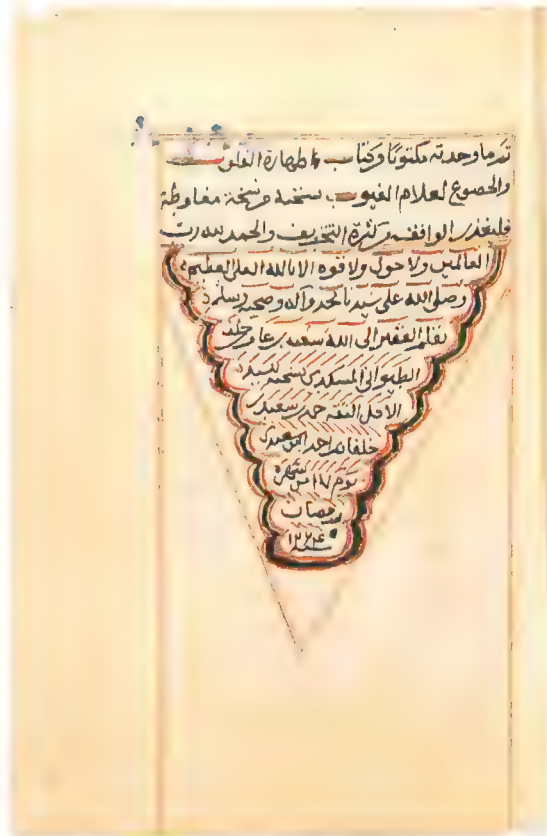 تم ما وجدته مكتوبًا من كتاب طهارة القلوب
والخضوع لعلام الغيوب نسخته من نسخة مغلوطة
فليعذر الواقف من كثرة التحريف والحمد لله رب
العالمين ولا حول ولا قوة الا بالله العلي العظيم
وصلى الله على سيدنا محمد وآله وصحبه وسلم
بقلم الفقير الى الله سعيد بن عامر بن خلف
الطيواني المسكدي نسخته لسيده
الاجل الثقة حمد بن سعيد بن
خلفان بن احمد البوسعيدي
يوم ١٧ من شهر
رمضان
سنة ١٢٢٤